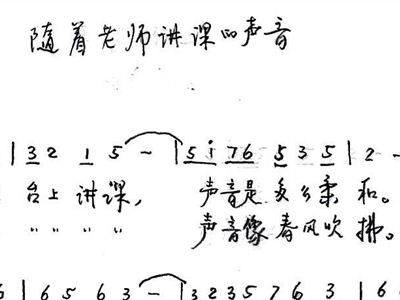 随着老师讲课的声音
| 3 2 1 5 — | 5 i 7 6 5 3 5 | 2 -
台上 讲课， 声音是多么柔和。
〃 〃 〃 〃 声音像春风吹拂。
6 | 6 5 6 3 — | 3 2 3 5 7 6 3 | 6 1